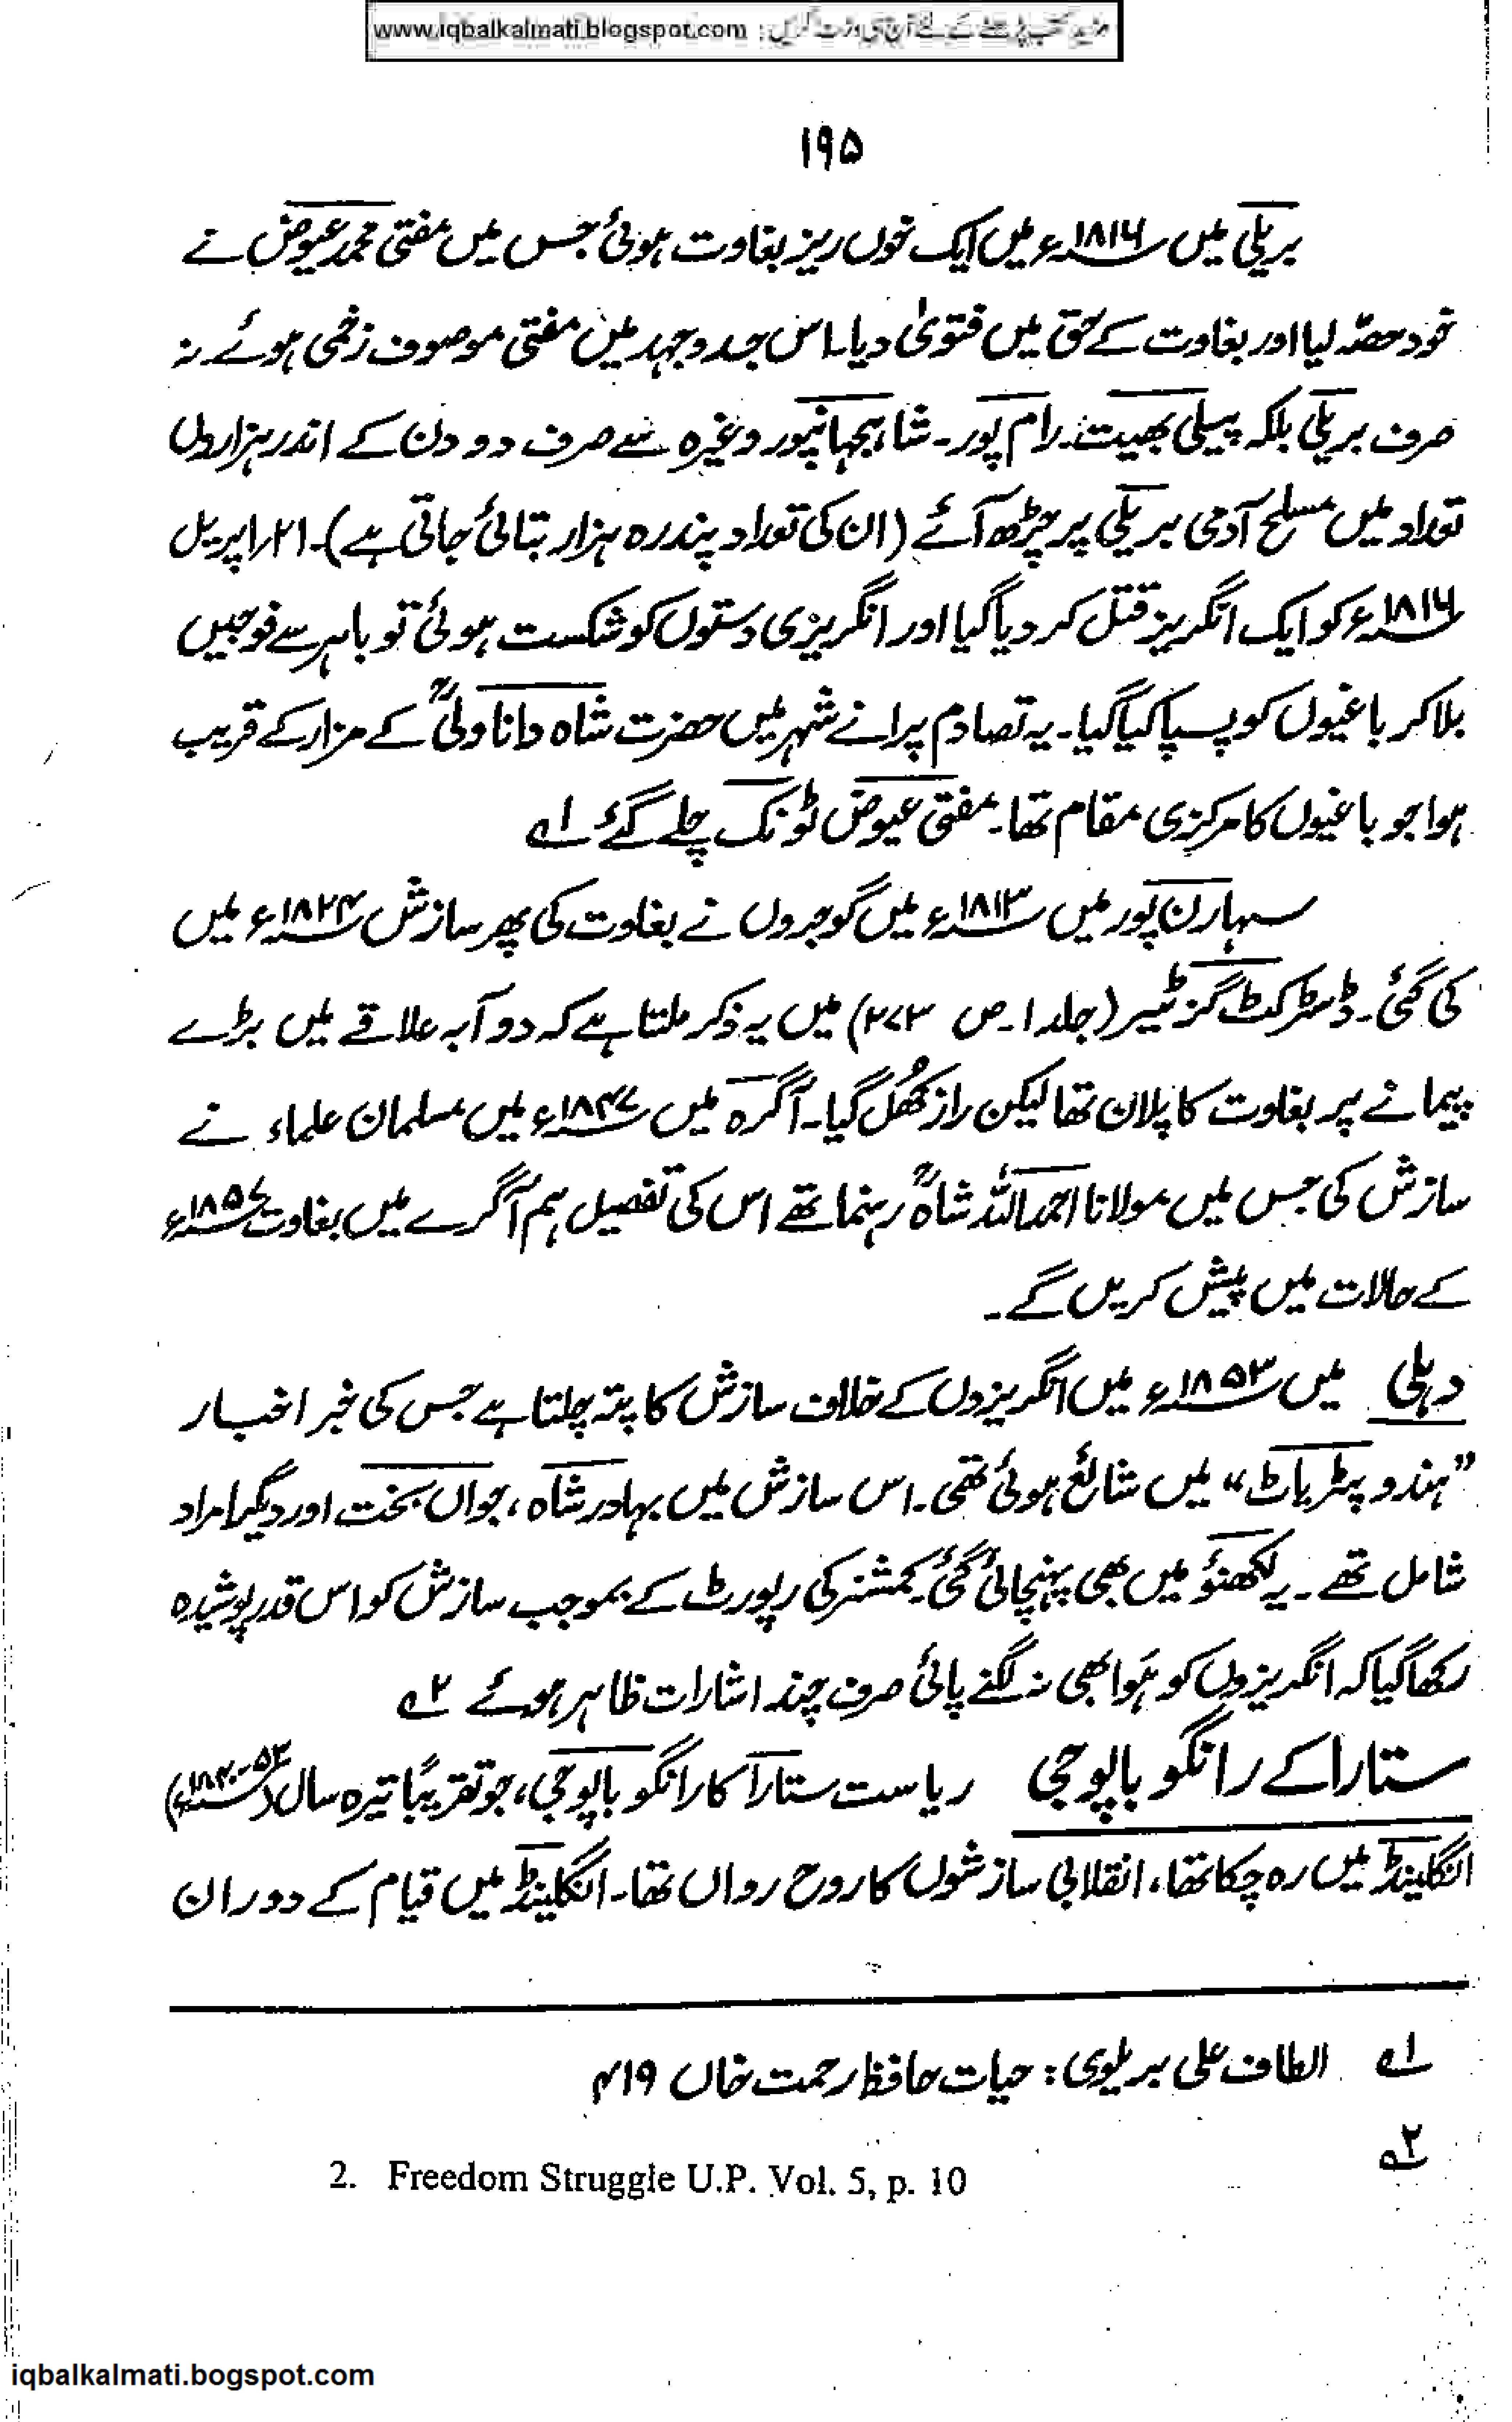 مزید کتب پڑھنے کے لئے آج ہی وزٹ کریں : www.iqbalkalmati.blogspot.com
۱۹۵
بریلی میں ۱۸۱۶ء میں ایک خوں ریز بغاوت ہوئی جس میں مفتی محمد عیوض نے
خود حصّہ لیا اور بغاوت کے حق میں فتویٰ دیا۔ اس جدوجہد میں مفتی موصوف زخمی ہوئے۔ نہ
صرف بریلی بلکہ پیلی بھیت۔ رام پور۔ شاہجہانپور وغیرہ سے صرف دو دن کے اندر ہزاروں
تعداد میں مسلح آدمی بریلی پر چڑھ آئے (ان کی تعداد پندرہ ہزار بتائی جاتی ہے)۔ ۲۱؍اپریل
۱۸۱۶ء کو ایک انگریز قتل کر دیا گیا اور انگریزی دستوں کو شکست ہوئی تو باہر سے فوجیں
بلا کر باغیوں کو پسپا کیا گیا۔ یہ تصادم پرانے شہر میں حضرت شاہ دانا ولیؒ کے مزار کے قریب
ہوا جو باغیوں کا مرکزی مقام تھا۔ مفتی عیوض ٹونک چلے گئے ۱؎
سہارن پور میں ۱۸۱۳ء میں گوجروں نے بغاوت کی پھر سازش ۱۸۲۴ء میں
کی گئی۔ ڈسٹرکٹ گزٹیر (جلد ۱۔ ص ۲۷۳) میں یہ ذکر ملتا ہے کہ دوآبہ علاقے میں بڑے
پیمانے پر بغاوت کا پلان تھا لیکن راز کھُل گیا۔ آگرہ میں ۱۸۴۷ء میں مسلمان علماء نے
سازش کی جس میں مولانا احمد اللہ شاہؒ رہنما تھے اس کی تفصیل ہم آگرے میں بغاوت ۱۸۵۷ء
کے حالات میں پیش کریں گے۔
دہلی میں ۱۸۵۳ء میں انگریزوں کے خلاف سازش کا پتہ چلتا ہے جس کی خبر اخبار
”ہندو پیٹریاٹ“ میں شائع ہوئی تھی۔ اس سازش میں بہادر شاہ، جواں بخت اور دیگر امراء
شامل تھے۔ یہ لکھنؤ میں بھی پہنچائی گئی۔ کمشنر کی رپورٹ کے بموجب سازش کو اس قدر پوشیدہ
رکھا گیا کہ انگریزوں کو ہَوا بھی نہ لگنے پائی صرف چند اشارات ظاہر ہوئے ۲؎
ستارا کے رانگو باپوجی ریاست ستارا کا رانگو باپوجی، جو تقریباً تیرہ سال (۵۳-۱۸۴۰ء)
انگلینڈ میں رہ چکا تھا، انقلابی سازشوں کا روح رواں تھا۔ انگلینڈ میں قیام کے دوران
۱؎ الطاف علی بریلوی: حیات حافظ رحمت خاں ۴۱۹
۲؎
2. Freedom Struggle U.P. Vol. 5, p. 10
iqbalkalmati.bogspot.com